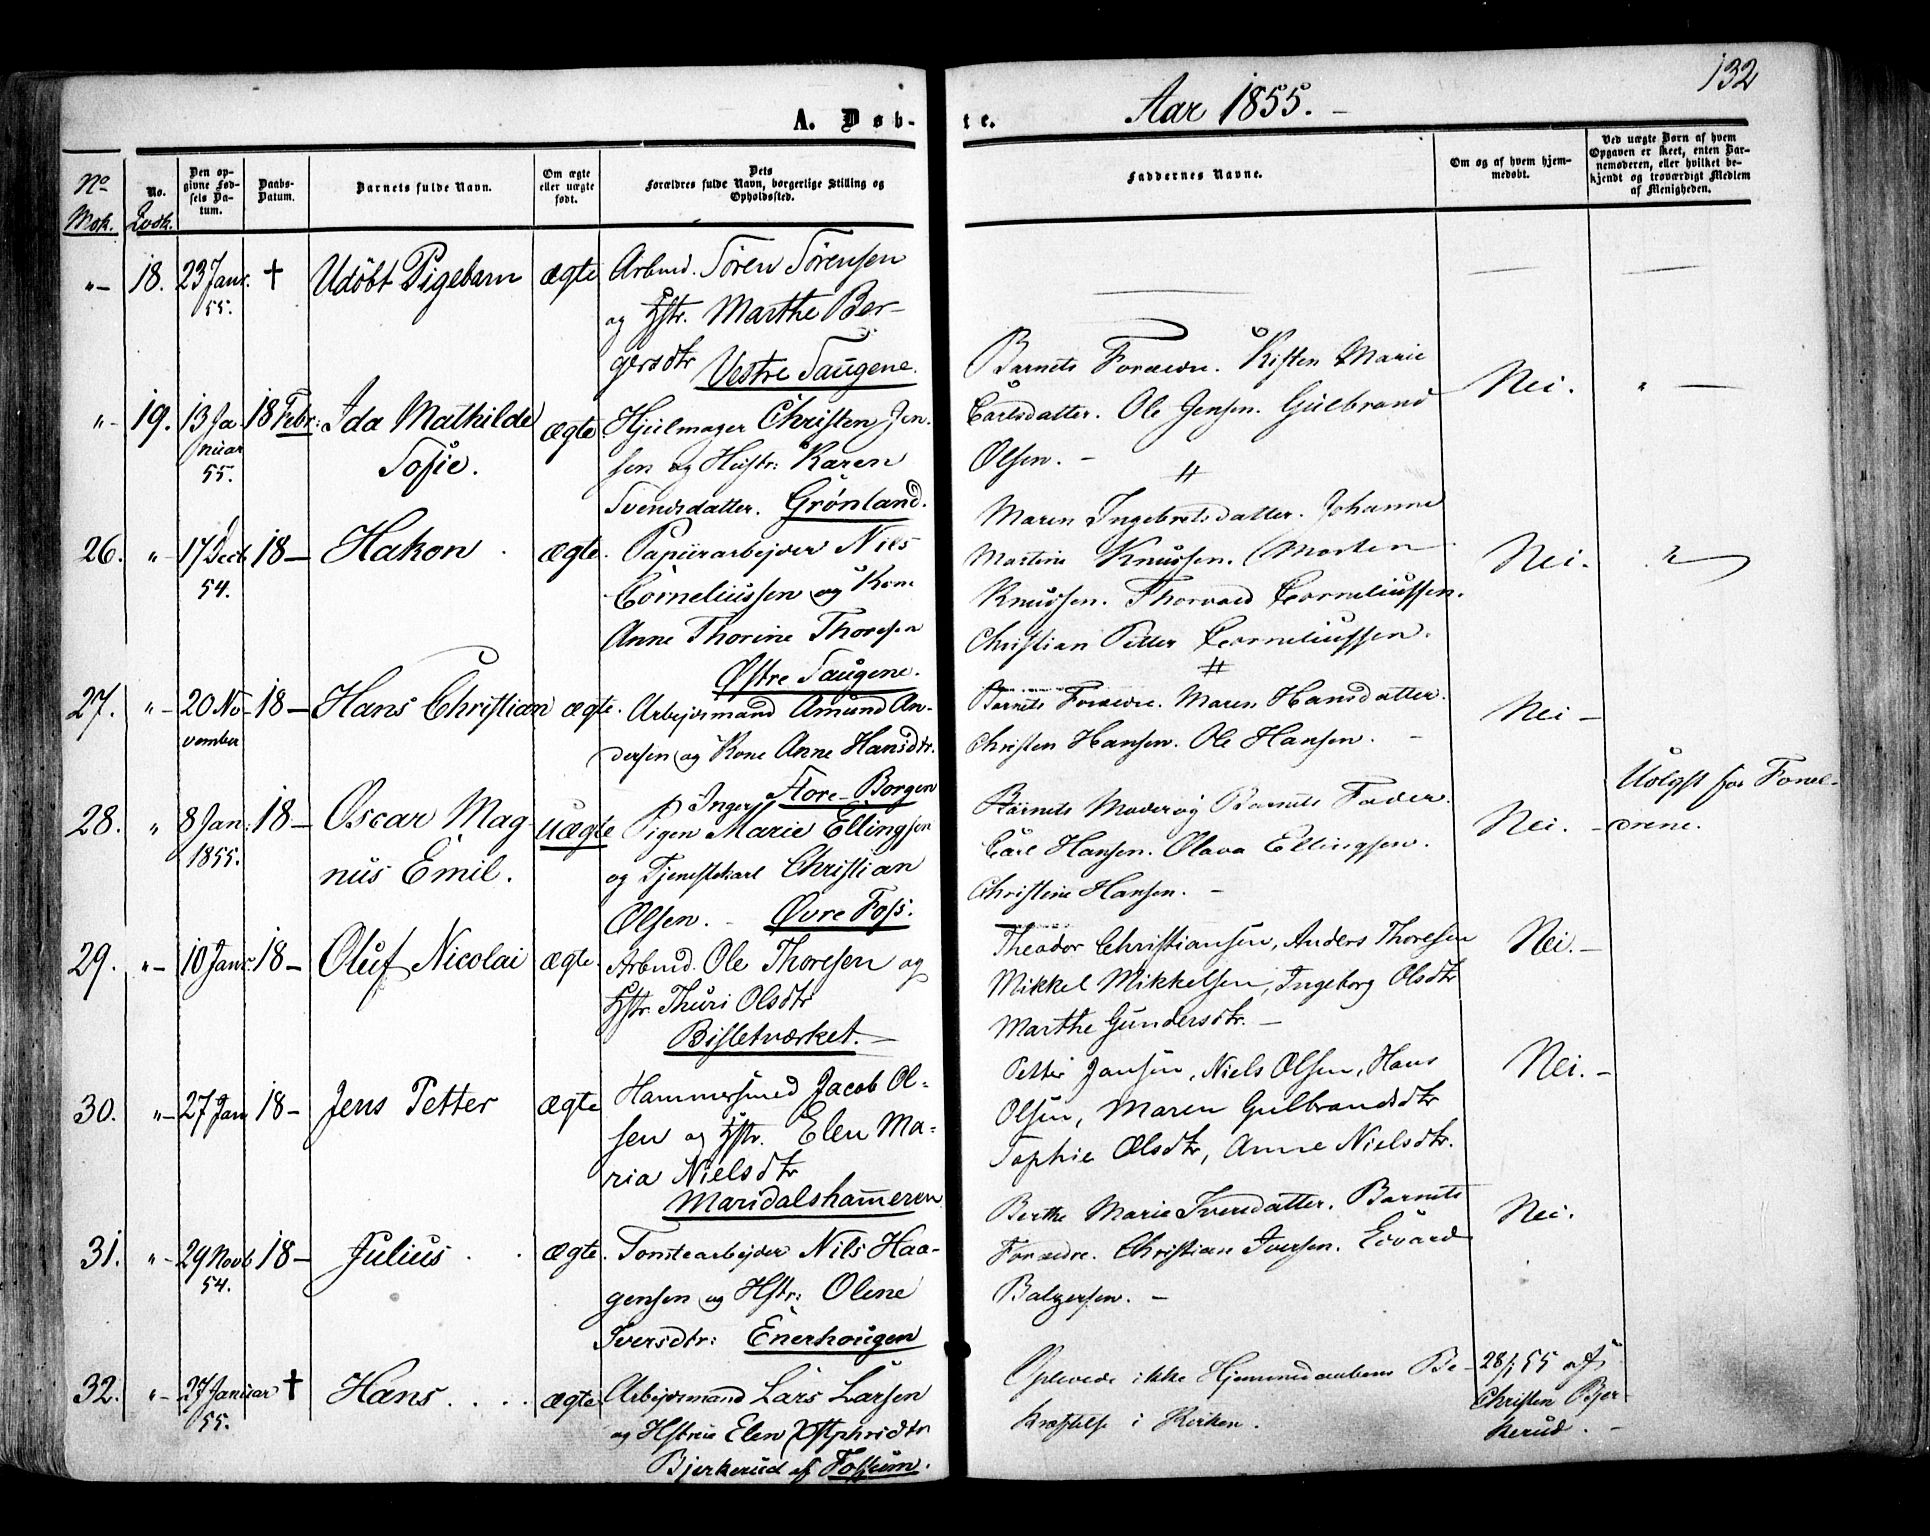 132
Aar 1855. -
A. Døb-
te.
No Mok.
No. Qvok.
Den op-
givne Fød-
sels Da-
tum.
Daabs-
Datum.
Barnets fulde Navn.
Om ægte
eller uægte
født.
Dets
Forældres fulde Navn, borgerlige Stilling og
Opholdssted.
Faddernes Navne.
Om og af hvem hjem-
medøbt.
Ved uægte Børn af hvem
Opgaven er skeet, enten Bar-
nemoderen, eller hvilket be-
kjendt og troværdigt Medlem
af Menigheden.
"- 18. 23 Janr. 55. † Udøbt Pigebarn ægte
Arbmd. Sören Sörensen
og Hstr. Marthe Ber-
gersdtr Vestre Saugene.
"- 19. 13 Ja-
nuar
55. 18 Febr: Ida Mathilde
Sofie. ægte.
Hjulmager Christen Jen-
sen og Hustr: Karen
Svendsdatter. Grønland.
Barnets Forældre. Kisten Marie
Carlsdatter. Ole Jensen. Gulbrand
Olsen. -
Nei. " -
26. " 17 Decb. 54. 18 - Hakon. ægte.
Papiirarbejder Nils
Corneliussen og Kone
Anne Thorine Thoresen
Østre Saugene.
Maren Ingebretsdatter. Johanne
Martine Knussen. Morten
Knudsen. Thorvald Corneliussen.
Christian Petter Corneliussen.
Nei. "
27. "- 20 No-
vember 18 - Hans Christian ægte.
Arbejdsmand Amund An-
dersen og Kone Anne Hansdtr.
Store-Borgen
Barnets Forældre. Maren Hansdatter.
Christen Hansen. Ole Hansen. -
Nei -
28. " 8 Jan: 1855. 18 - Oscar Mag-
nus Emil. uægte
Pigen Inger Marie Ellingsen
og Tjenestekarl Christian
Olsen. - Øvre Foss.
Barnets Moder og Barnets Fader.
Carl Hansen. Olava Ellingsen.
Christine Hansen. -
Nei. -
Uolgst for Foræl-
drene.
29. "- 10 Janr. 18 - Oluf Nicolai ægte.
Arbmd. Ole Thoresen og
Hstr. Thuri Olsdtr
Bisletværket. -
Theodor Christiansen, Anders Thoresen
Mikkel Mikkelsen, Ingeborg Olsdtr
Marthe Gundersdtr. -
Nei. -
30. "- 27 Jan 18 - Jens Petter ægte
Hammersmed Jacob Ol-
sen og Hstr. Elen Ma-
ria Nielsdtr
Maridalshammeren
Petter Jansen, Niels Olsen, Hans
Olsen, Maren Gulbrandsdtr
Sophie Olsdtr, Anne Nielsdtr.
Nei. -
31. "- 29 Novb 54. 18 - Julius . . ægte.
Tomtearbejder Nils Haa-
gensen og Hstr: Olene
Iversdtr: Enerhougen
Berthe Marie Iversdatter. Barnets
Forældre. Christian Iversen. Edvard
Balzersen. -
Nei.
32. "- 27 Januar 55. † Hans. . . . ægte
Arbejdsmand Lars Larsen
og Hstrue Elen Christophrsdtr
Bjerkerud af Fossum.
Oplevede ikke Hjemmedaabens Be-
kræftelse i Kirken.
28/1 55 af
Christen Bjer-
kerud. -